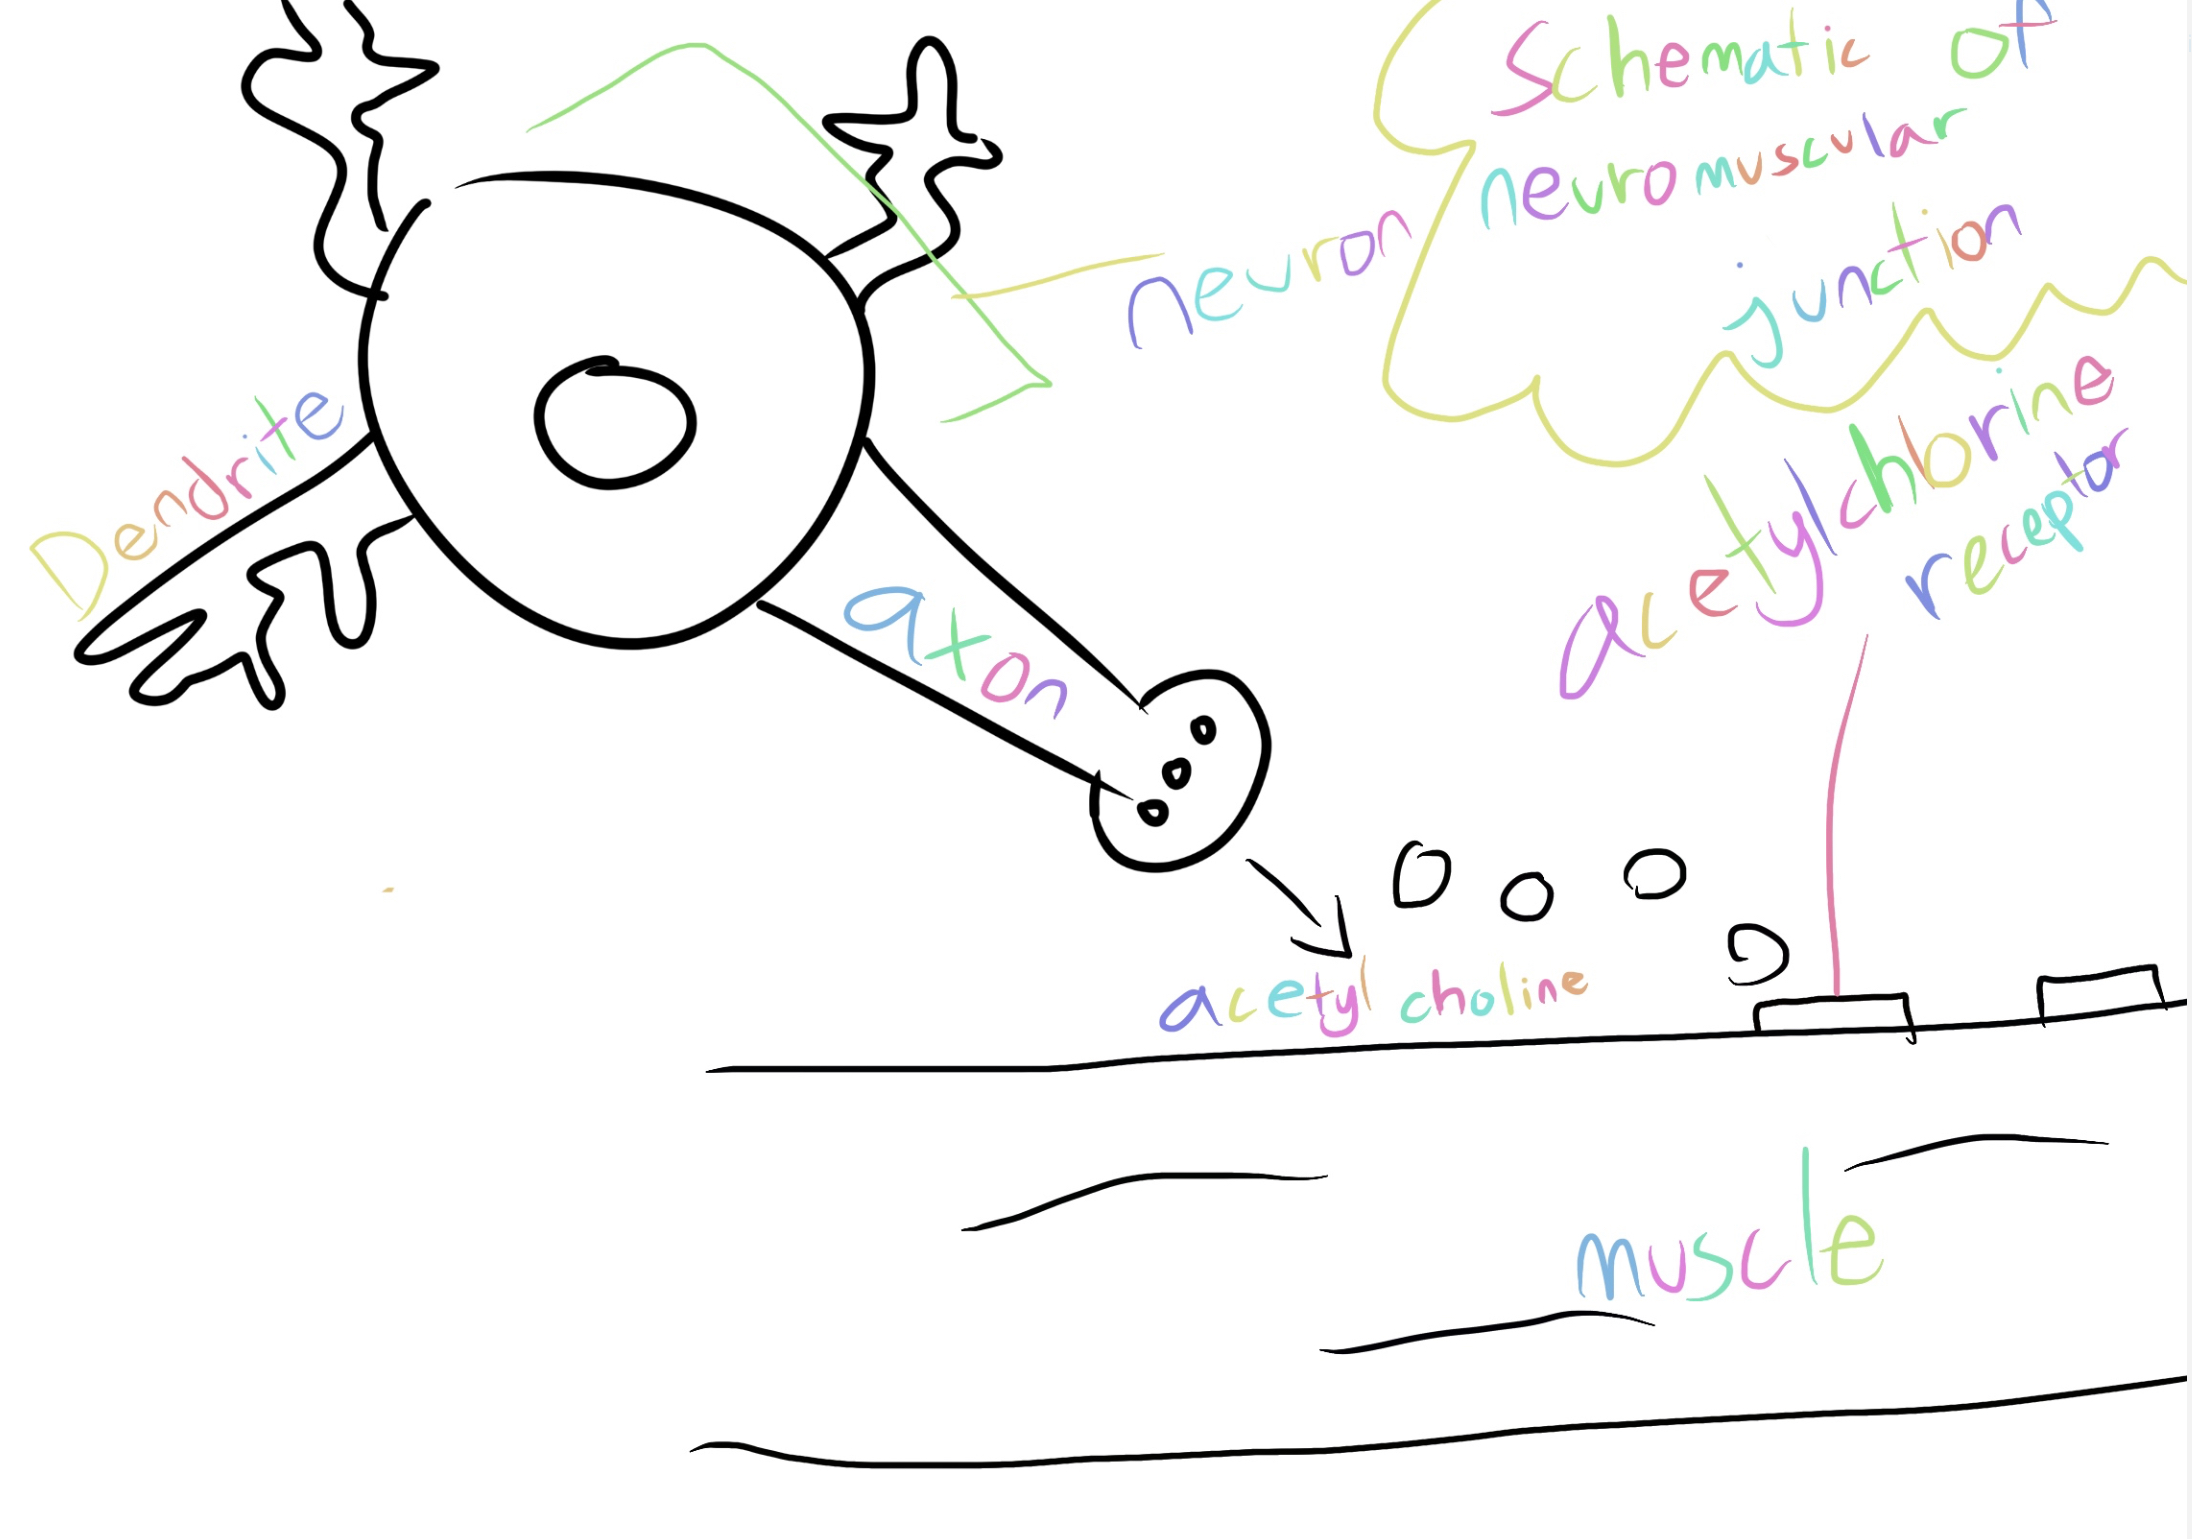 Schematic of
neuromuscular
junction
neuron
Dendrite
acetylchorine
receptor
axon
acetyl choline
muscle